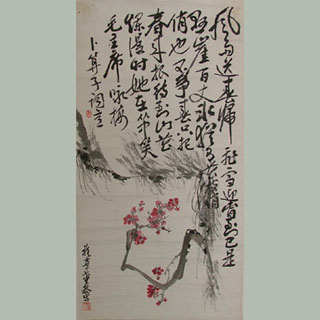 风雨送春归 飛雪迎春到已是
懸崖百丈冰犹有花枝
俏也不争春只把
春来报待到山花
爛漫时她在丛中笑
毛主席咏梅
卜算子词意